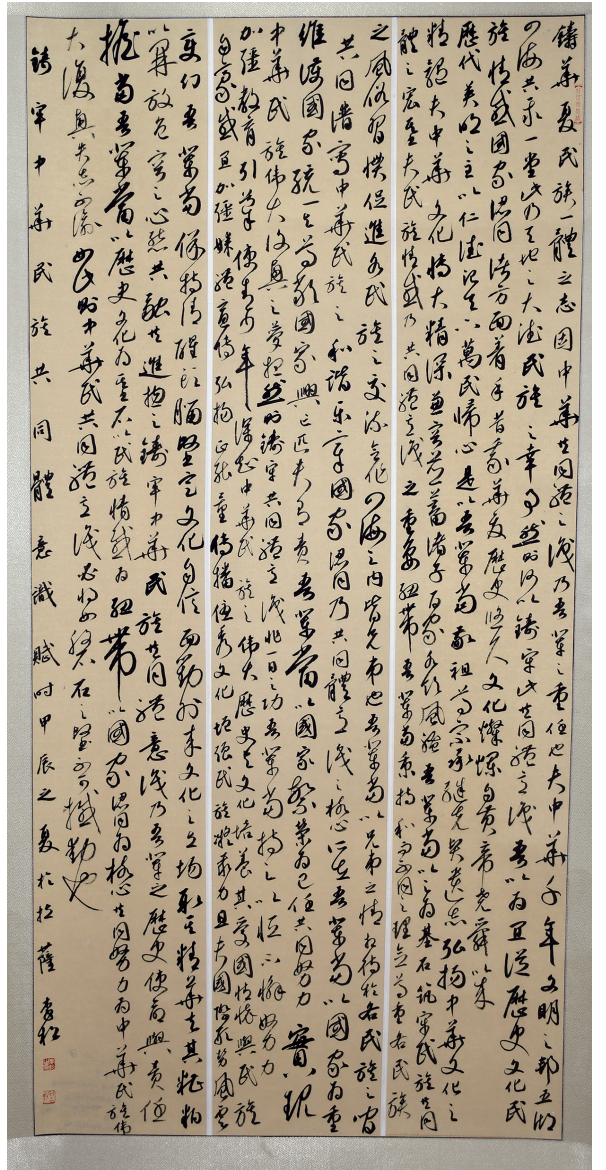 鑄華夏民族一體之志固中華共同體之識乃吾輩之重任也夫中華千年文明之邦五湖
四海共承一堂此乃天地之大德民族之幸事然則何以鑄牢此共同體意識吾以為宜從歷史文化民
族情感國家認同諸方面著手昔我華夏歷史悠久文化燦爛自黃帝堯舜以來
歷代英明之主以仁德治天下萬民歸心是以吾輩當敬祖尊宗承繼先賢遺志弘揚中華文化之
精髓夫中華文化博大精深兼容並蓄諸子百家各領風騷吾輩當以之為基石筑牢民族共同
體之宏基夫民族情感乃共同體意識之重要紐帶吾輩當秉持和而不同之理念尊重各民族
之風俗習慣促進各民族之交流合作四海之內皆兄弟也吾輩當以兄弟之情相待於各民族之間
共同譜寫中華民族之和諧樂章國家認同乃共同體意識之核心所在吾輩當以國家為重
維護國家統一之尊嚴國家興亡匹夫有責吾輩當以國家繁榮為己任共同努力實現
中華民族偉大復興之夢想然則鑄牢共同體意識非一日之功吾輩當持之以恆不懈努力
加強教育引導使青少年深知中華民族之偉大歷史文化培養其愛國情懷與民族
自豪感宜加強媒體宣傳弘揚正能量傳播優秀文化增強民族凝聚力且夫國際形勢風雲
變幻吾輩當保持清醒頭腦堅定文化自信面對外來文化之立場取其精華去其糟粕
以開放包容之心態共融共進揚之鑄牢中華民族共同體意識乃吾輩之歷史使命與責任
擔當吾輩當以歷史文化為基石以民族情感為紐帶以國家認同為核心共同努力為中華民族偉
大復興矢志不渝如此則中華民共同體意識必將如磐石之堅不可撼動也
鑄牢中華民族共同體意識賦時甲辰之夏於拉薩李松